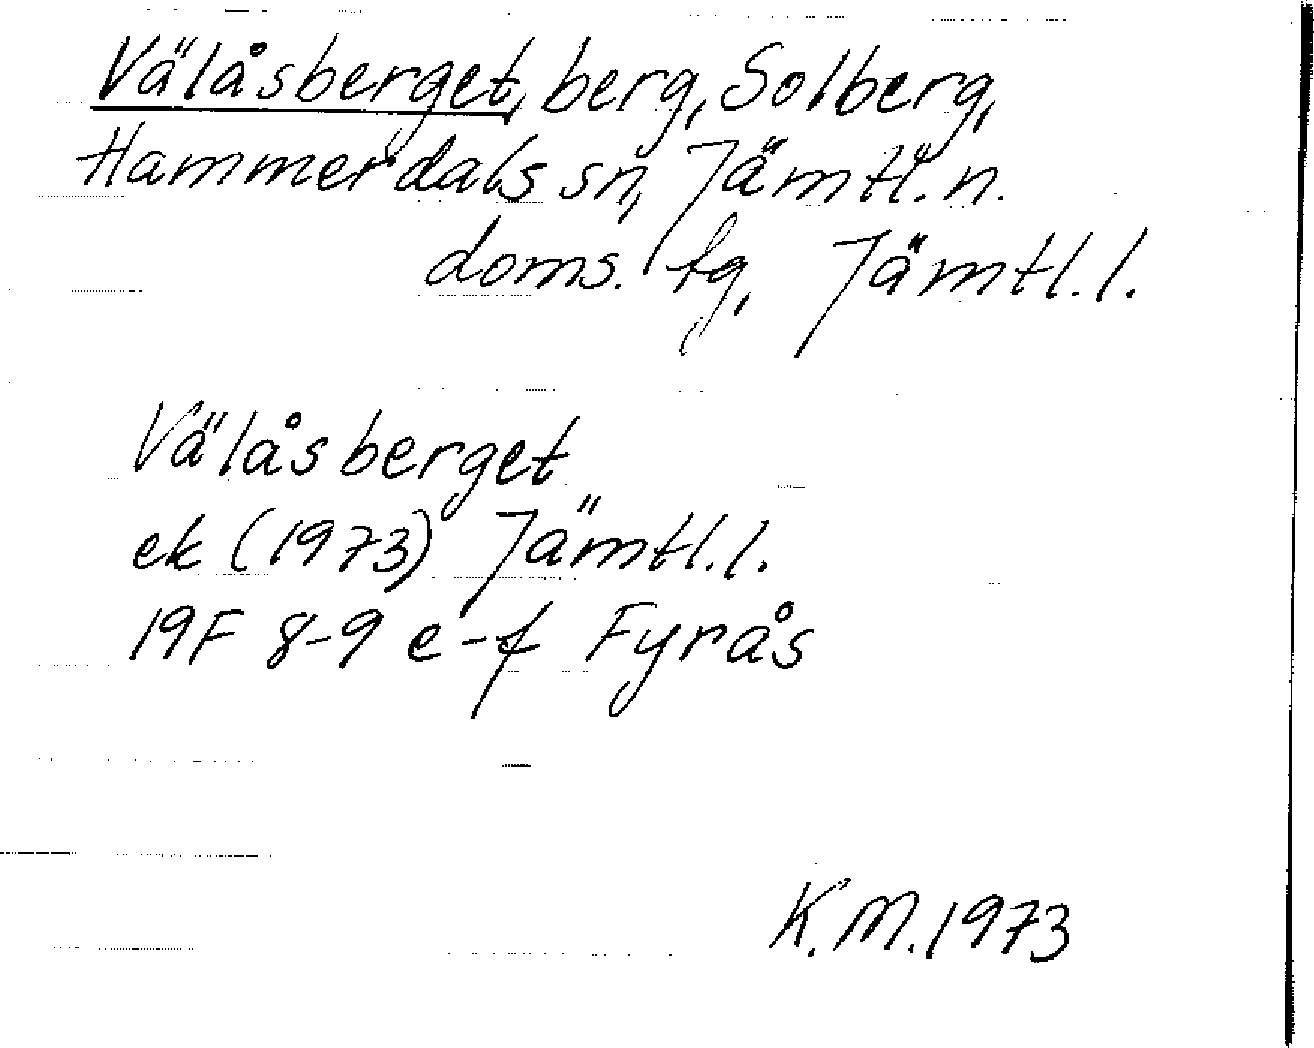 Välåsberget, berg, Solberg,
Hammerdals sn, Jämtl. n.
doms. tg, Jämtl. l.
Välåsberget
ek (1973) Jämtl. l.
19F 8-9 e-f Fyrås
K.M. 1973